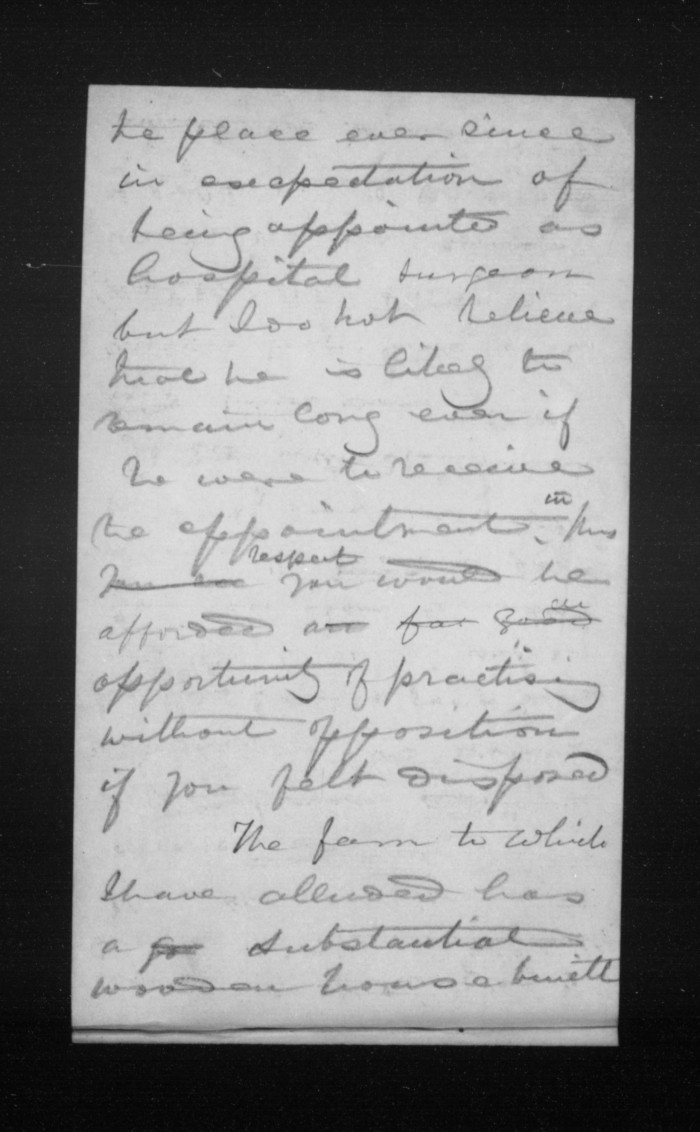 the place ever since
in execpectation of
being appointed as
hospital surgeon
but I do not believe
that he is likely to
remain long even if
he were to receive
the appointment. in this
respect you would be
afforded an far good an
opportunity of practising
without opposition
if you felt disposed
The farm to which
I have alluded has
a go substantial
wooden house built